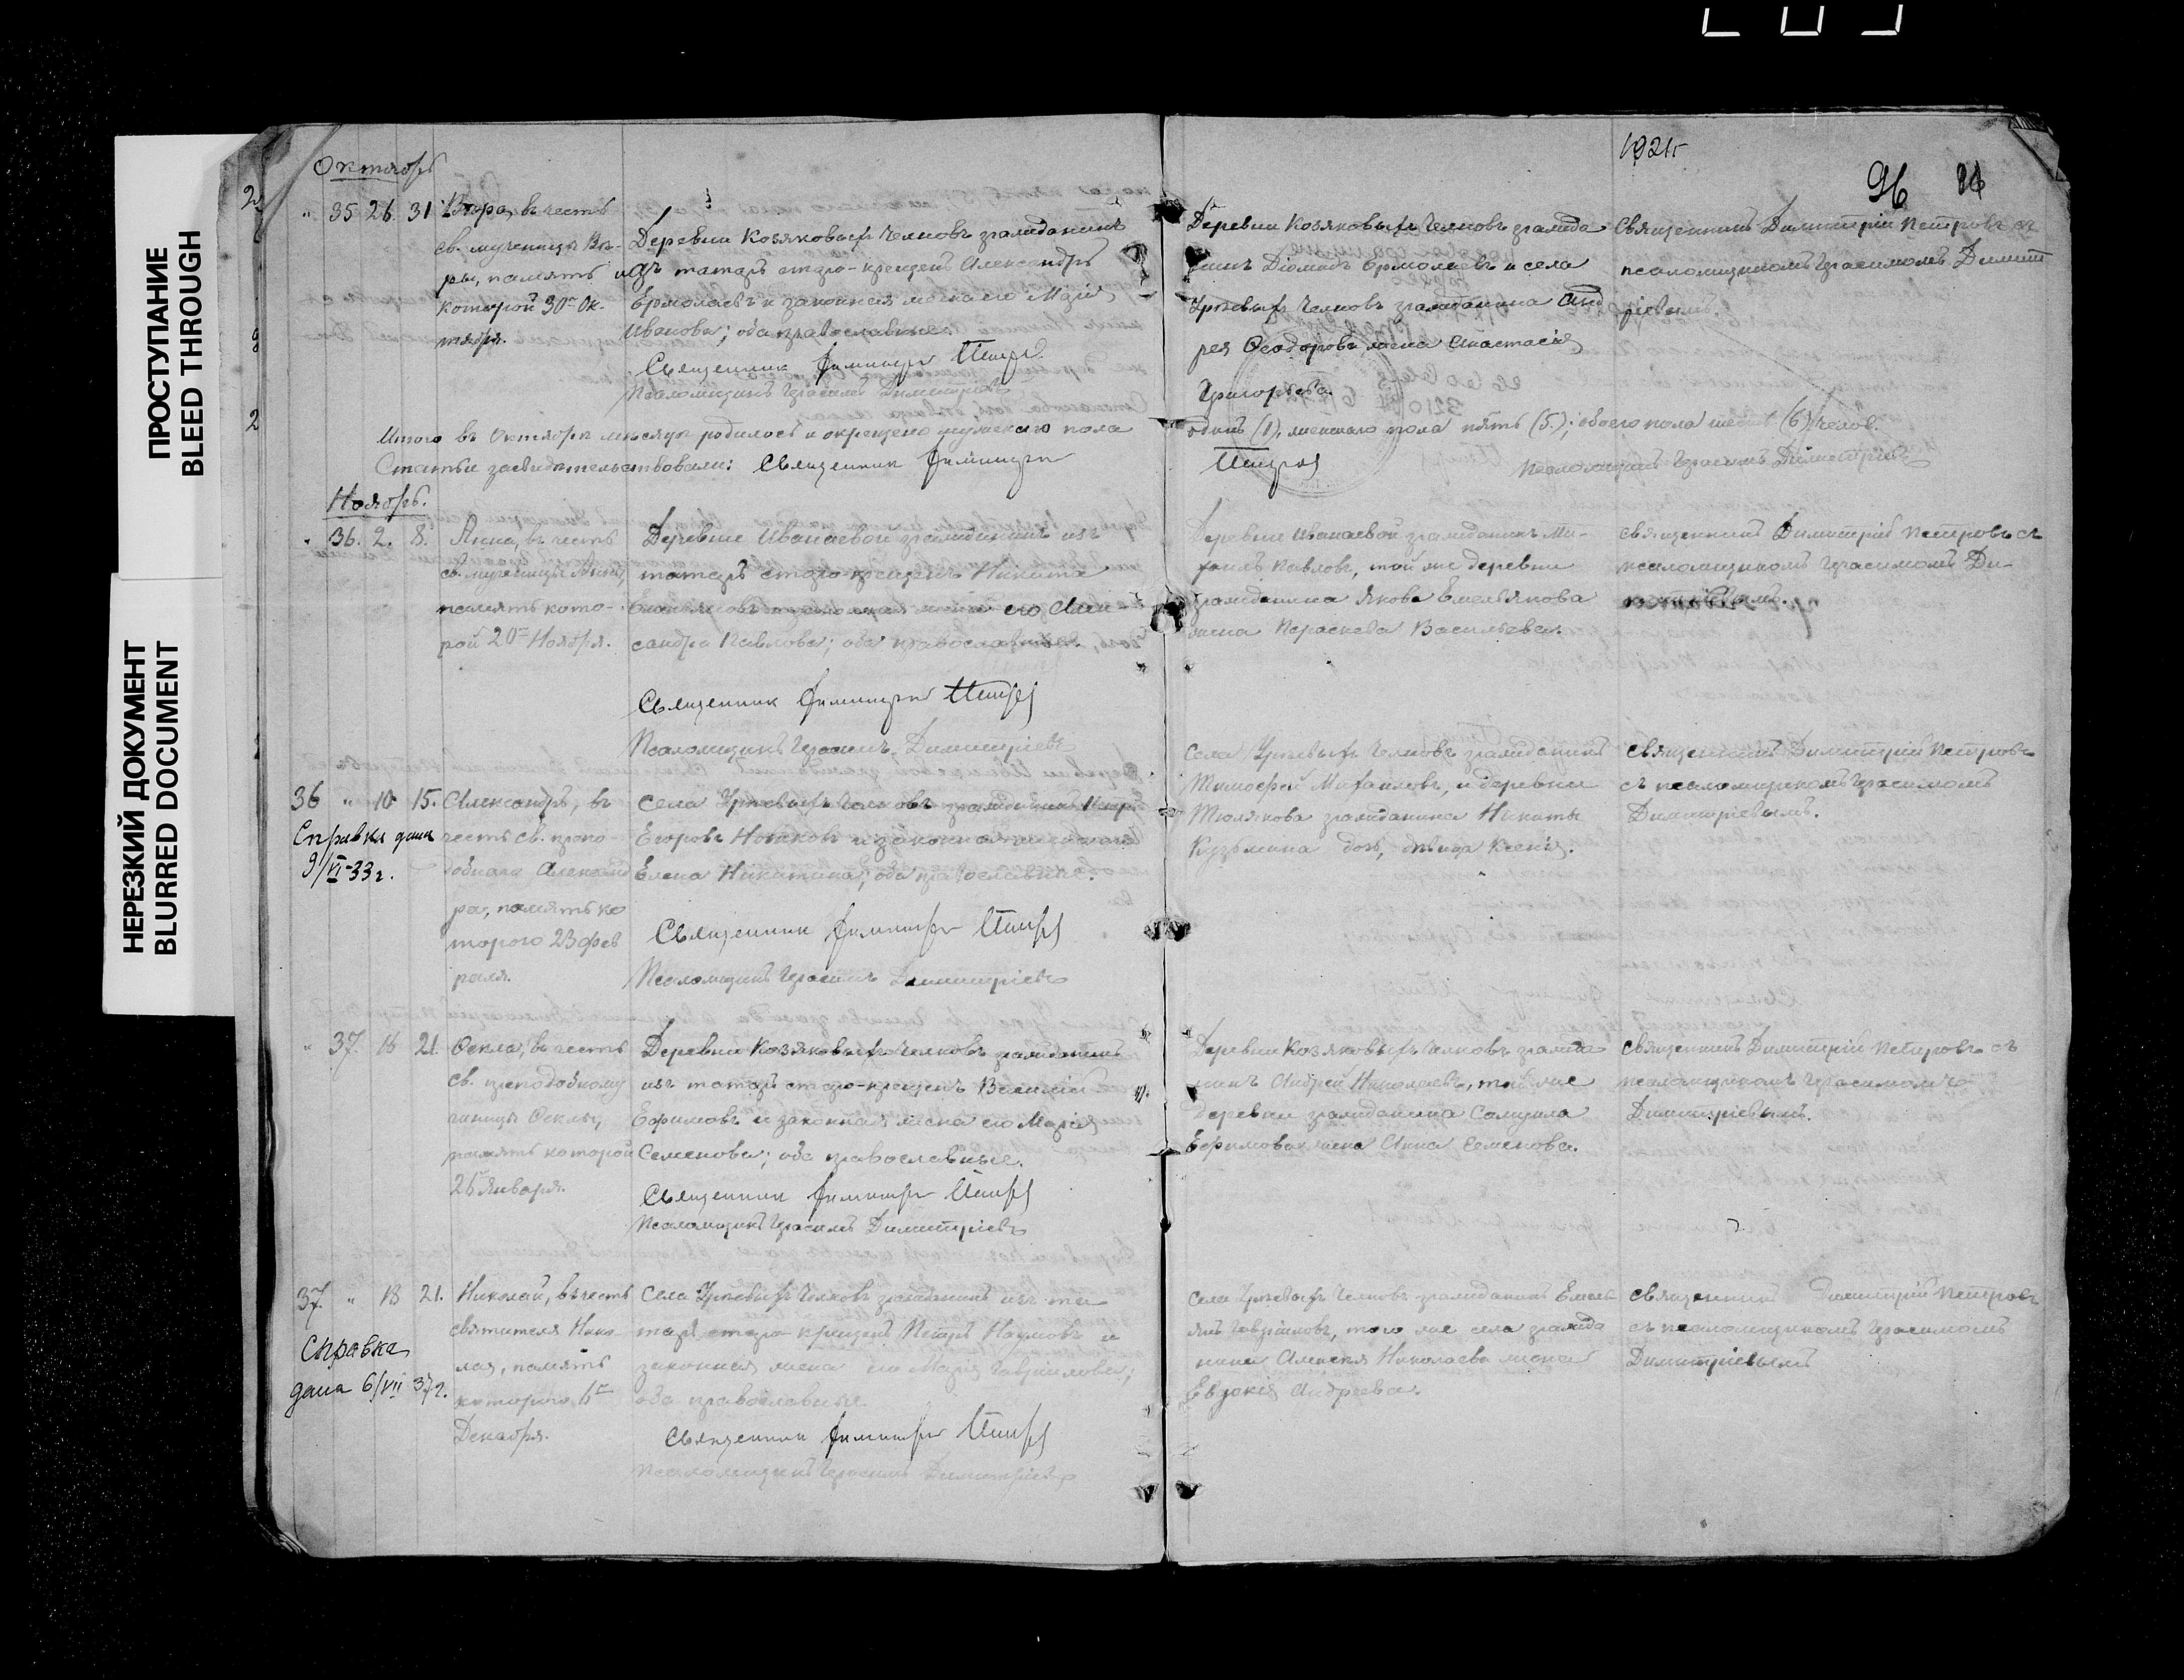 ПРОСТУПАНИЕ
BLEED THROUGH
НЕРЕЗКИЙ ДОКУМЕНТ
BLURRED DOCUMENT
1921г
96
Октябрь
" 35 26. 31 Вѣра, въ честь
св. мученицы Вѣ-
ры, память
которой 30го Ок-
тября.
Деревни Козяковыхъ Челновъ гражданинъ
изъ татаръ старо-крещенъ Александръ
Ермолаевъ и законная жена его Марія
Иванова; оба православные.
Священник Димитри Петров
Псаломщикъ Герасимъ Димитріевъ
Деревни Козяковыхъ Челновъ гражда
нинъ Діомидъ Ермолаевъ и села
Урѣевыхъ Челновъ гражданина Анд
рея Ѳеодорова жена Анастасія
Григорьева.
Священникъ Димитрій Петровъ съ
псаломщикомъ Герасимомъ Димит
ріевымъ.
Итого въ Октябрѣ мѣсяцѣ родилось и окрещено мужскаго пола
одинъ (1), женскаго пола пять (5.); обоего пола шесть (6) челов.
Статьи засвидѣтельствовали: Священник Димитри
Петров
Псаломщикъ Герасимъ Димитріевъ
Ноябрь.
" 36. 2. 8. Анна, въ честь
св. мученицы Анны,
память кото-
рой 20го Ноября.
Деревни Иванаевой гражданинъ изъ
татаръ старо-крещенъ Никита
Емельяновъ и законная жена его Алек
сандра Павлова; оба православные.
Священник Димитри Петров
Псаломщикъ Герасимъ Димитріевъ
Деревни Иванаевой гражданинъ Ми-
хаилъ Павловъ, той же деревни
гражданина Якова Емельянова
жена Параскева Васильева.
Священникъ Димитрій Петровъ съ
псаломщикомъ Герасимомъ Ди-
митріевымъ.
36 " 10 15. Александръ, въ
честь св. препо-
добнаго Александ
ра, память ко
тораго 23 Фев
раля.
Справка дана
9/VI-33г.
Села Урѣевыхъ Челновъ гражданинъ
Егоровъ и законная жена его
Елена Никитина; оба православные.
Священник Димитри Петров
Псаломщикъ Герасимъ Димитріевъ
Села Урѣевыхъ Челновъ гражданинъ
Тимофей Михаиловъ, и деревни
Тюлякова гражданина Никиты
Кузьмина дочь, дѣвица Ксенія.
Священникъ Димитрій Петровъ
съ псаломщикомъ Герасимомъ
Димитріевымъ.
" 37. 18 21. Ѳекла, въ честь
св. преподобному
ченицы Ѳеклы,
память которой
Января.
Деревни Козяковыхъ Челновъ гражданинъ
изъ татаръ старо-крещенъ Василій
Ефимовъ и законная жена его Марія
Семенова; оба православные.
Священник Димитри Петров
Псаломщикъ Герасимъ Димитріевъ
Деревни Козяковыхъ Челновъ гражда
нинъ Андрей Николаевъ, той же
деревни гражданина Самуила
Ефимова жена Анна Семенова.
Священникъ Димитрій Петровъ съ
псаломщикомъ Герасимомъ
Димитріевымъ.
37. " 18 21. Николай, въ честь
святителя Нико-
лая, память
котораго 6го
Декабря.
Справка
дана 6/VII 37г.
Села Урѣевыхъ Челновъ гражданинъ изъ та
таръ старо-крещенъ Петръ Наумовъ и
законная жена его Марія Гавріилова;
оба православные.
Священник Димитри Петров
Псаломщикъ Герасимъ Димитріевъ
Села Урѣевыхъ Челновъ гражданинъ Емель
янъ Гавріиловъ, того же села гражда
нина Алексѣя Николаева жена
Евдокія Андреева.
Священникъ Димитрій Петровъ
съ псаломщикомъ Герасимомъ
Димитріевымъ